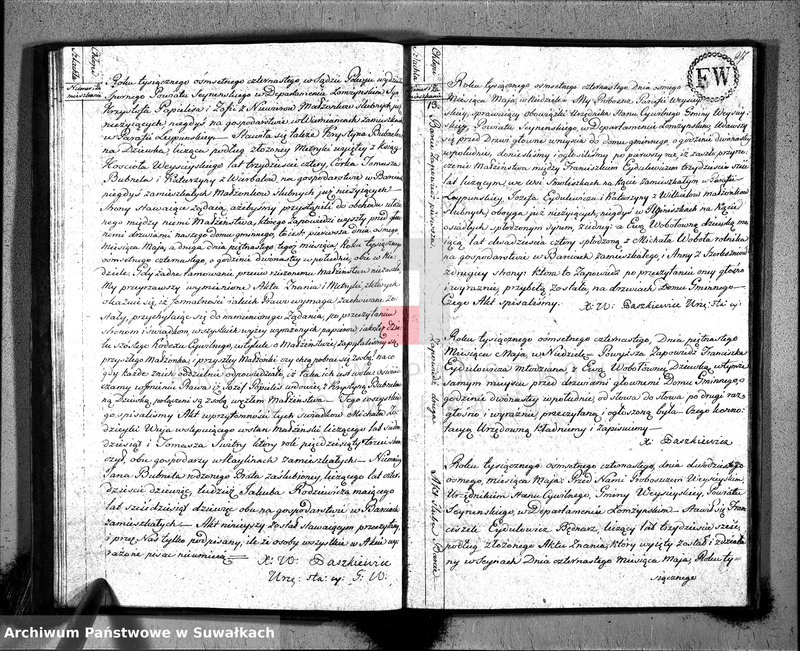 Roku tysiącznego ośmsetnego czternastego, w Sądzie Pokoju wydzia
łowego Powiatu Seynenskiego w Departamencie Łomżyńskim, Syn
Krzysztofa Papielisa i Zofii z Małżonków ślubnych już
nieżyjących niegdyś na gospodarstwie w zamieszka
w Parafii Stawiła się także Krystyna Bubnelu
na Dziewka, licząca podług złożonej Metryki wyjętej z Ksiąg
Kościoła Weysieyskiego lat trzydzieści cztery, Córka Janusza
Bubnela i Katarzyny z Małżonków na gospodarstwie w
niegdyś zamieszkałych Małżonków ślubnych już nieżyjących
Strony stawające żądają, ażebyśmy przystąpili do obchodu ułożo
nego między niemi Małżeństwa, którego Zapowiedzi wyszły przed głów
nemi drzwiami naszego domu gminnego, to jest: pierwsza dnia osmego
Miesiąca Maja, a druga dnia piętnastego tegoż miesiąca, Roku tysiącznego
ośmsetnego czternastego, o godzinie dwunastej w południe, obie w Nie
dziele. Gdy żadne tamowanie przeciw rzeczonemu małżeństwu nie zaszło,
My przejrzawszy wymienione Akta Znania i Metryki, z których
okazuje się, iż formalności jakich Prawo wymaga zachowane zo
stały, przychylając się do namienionego żądania, po przeczytaniu
stronom i świadkom wszystkich wyżej wyrażonych papierów i
tu szóstego Kodexu Cywilnego, w tytule o Małżeństwie, zapytaliśmy się
przyszłego Małżonka i przyszłej Małżonki czy chcą pobrać się z sobą, na co
gdy każde z nich oddzielnie odpowiedziało, iż taka ich jest wola: oświad
czamy w Imieniu Prawa iż Józef Papielis wdowiec z Krystyną Bubnelu
ną Dziewką, połączeni są z sobą węzłem Małżeństwa. Tego wszystkiego
spisaliśmy Akt w przytomności tych Świadków Michała
Wuja wstępującego w stan Małżeński liczącego lat
dziesiąt i Tomasza
obu gospodarzy w zamieszkałych
Jana Bubnela rodzonego Brata zaślubionej, liczącego lat czter
dzieści dziewięć, tudzież Jakuba Rodziewicza mającego
lat sześćdziesiąt dziewięć obu na gospodarstwie w
zamieszkałych. Akt niniejszy został stawającym przeczytany
i przez Nas tylko podpisany, ile że osoby wszystkie w Akcie wy
rażone pisać nieumieją
X: W: Paszkiewicz
Urzę: sta: cy: G: W.
FW
13.
Roku tysiącznego ośmsetnego czternastego, dnia osmego
Miesiąca Maja, w Niedzielę. My Proboszcz Parafii Weysiey
skiey, sprawujący obowiązki Urzędnika Stanu Cywilnego Gminy Weysiey
skiey, Powiatu Seynenskiego, w Departamencie Łomżyńskim. Udawszy
się przed Drzwi główne wnyścia do domu gminnego, o godzinie dwunastej
w południe, donieśliśmy i ogłosiliśmy po pierwszy raz, iż zaszło przyrze
czenie Małżeństwa między Franciszkiem Eydulewiczem trzydzieści sześć
lat liczącym, we Wsi na Kącie zamieszkałym w Parafii
Łoypunskiej, Józefa Eydulewicza i Katarzyny z małżonków
ślubnych obojga już nieżyjących, niegdyś w na Kącie
osiadłych spłodzonym synem, z jednej: a Ewą Wobołowną dziewką ma
jącą lat dwadzieścia cztery spłodzoną z Michała Wobola rolnika
na gospodarstwie w zamieszkałego, i Anny z
z drugiej strony: która to Zapowiedź po przeczytaniu onej głośno
i wyraźnie, przybita została, na drzwiach Domu Gminnego
Czego Akt spisaliśmy.
X: W: Paszkiewicz Urzę: sta: cy:
Zapowiedź druga
Roku tysiącznego ośmsetnego czternastego, Dnia piętnastego
Miesiąca Maja, w Niedzielę. Powyższa Zapowiedź Franciszka
Eydulewicza młodziana, z Ewą Wobołowną Dziewką, w tymże
samym miejscu przed drzwiami głównemi Domu Gminnego, o
godzinie dwunastej w południe, od słowa do słowa po drugi raz
głośno i wyraźnie, przeczytana i ogłoszona była. Czego
Urzędową kładniemy i zapisujemy
X: Paszkiewicz
Roku tysiącznego ośmsetnego czternastego, dnia dwudziestego
osmego miesiąca Maja. Przed Nami Proboszczem Weysieyskim,
Urzędnikiem Stanu Cywilnego, Gminy Weysieyskiey, Powiatu
Seynenskiego, w Departamencie Łomżyńskim. Stawił się Fran
ciszek Eydulewicz Bednarz, liczący lat trzydzieści sześć,
podług złożonego Aktu Znania, który wyjęty został i zdziała
ny w Seynach Dnia czternastego miesiąca Maja, Roku ty-
siącznego
Archiwum Państwowe w Suwałkach